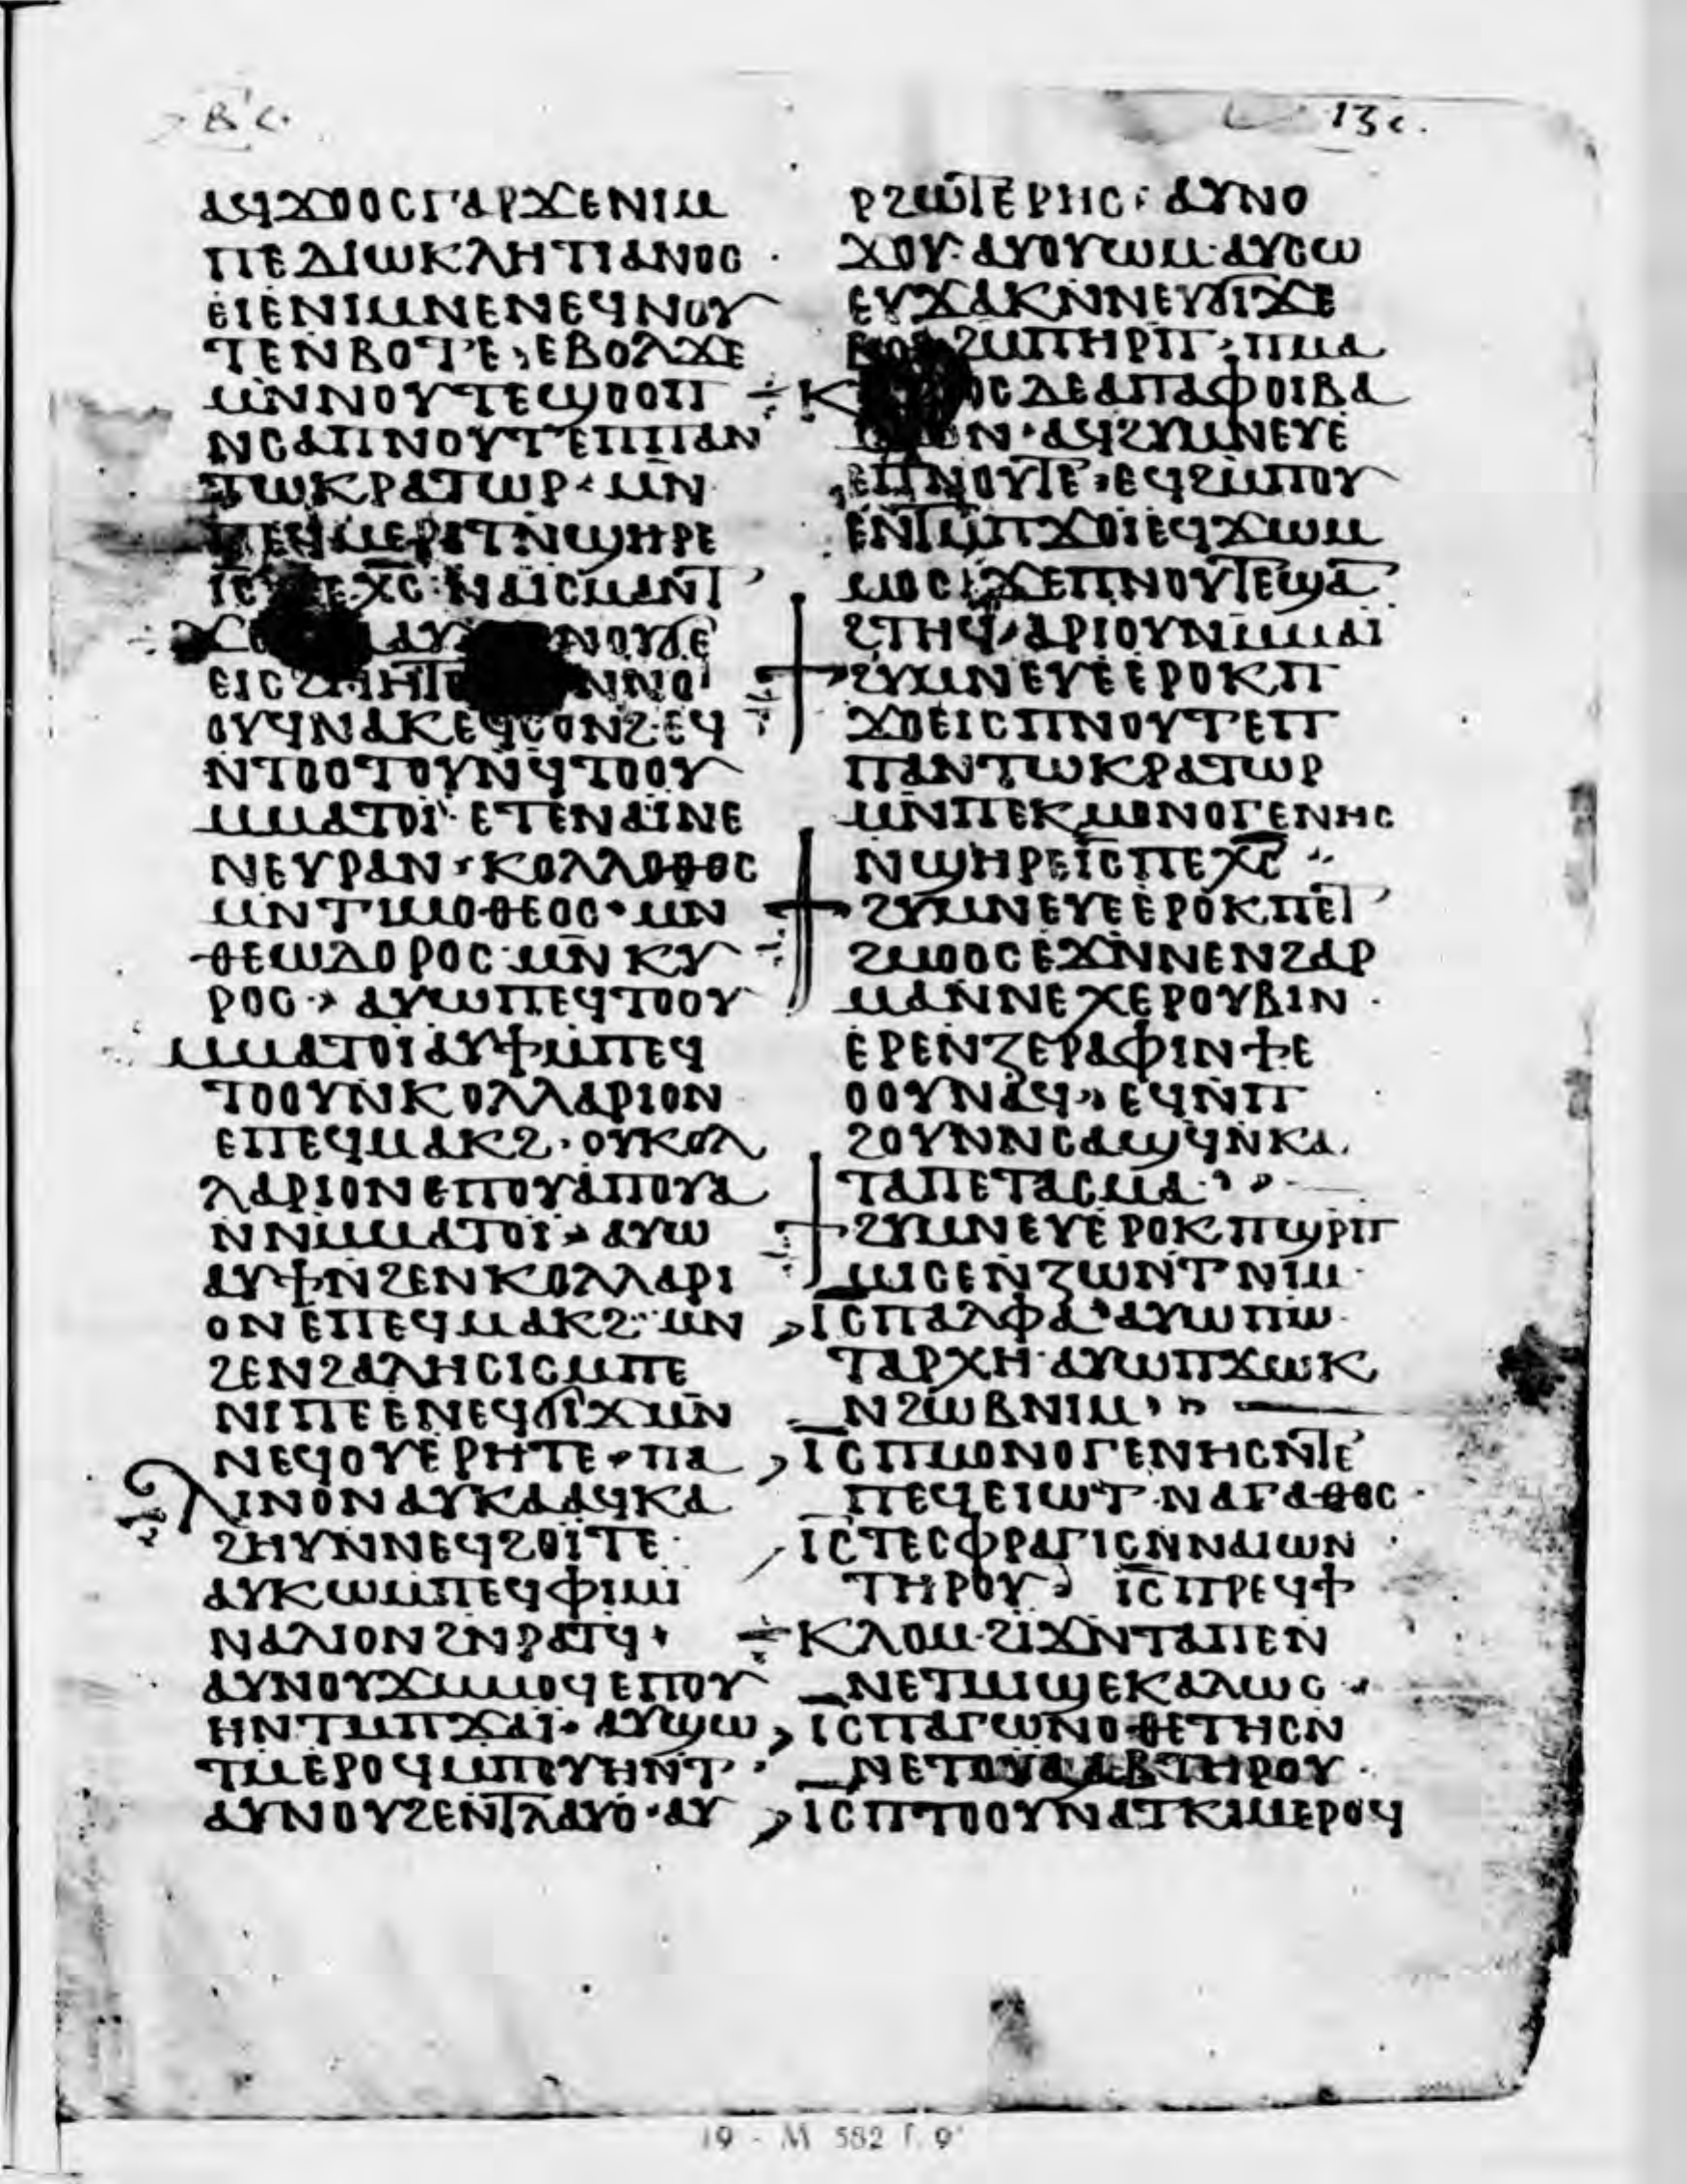 13 c.
ⲁϥϫⲟⲟⲥⲅⲁⲣϫⲉⲛⲓⲙ
ⲡⲉⲇⲓⲱⲕⲗⲏⲧⲓⲁⲛⲟⲥ ·
ⲉⲓⲉⲛⲓⲙⲛⲉⲛⲉϥⲛⲟⲩ
ⲧⲉⲛⲃⲟⲧⲉ· ⲉⲃⲟⲗϫⲉ
ⲙⲛⲛⲟⲩⲧⲉϣⲟⲟⲡ
ⲛⲥⲁⲡⲛⲟⲩⲧⲉⲡⲡⲁⲛ
ⲧⲱⲕⲣⲁⲧⲱⲣ· ⲙⲛ
ⲡⲉϥⲙⲉⲣⲓⲧⲛϣⲏⲣⲉ
ⲓ̅ⲥ̅ ⲭ̅ⲥ̅· ⲛⲁⲓⲥⲙⲁⲛⲧ
ⲁⲩ ⲛⲟⲩϭⲉ
ⲉⲓⲥϩⲙⲏⲧⲉ
ⲟⲩϥⲛⲁⲕⲉϥⲥⲟⲛϩ·ⲉϥ
ⲛⲧⲟⲟⲧⲟⲩⲛϥⲧⲟⲟⲩ
ⲙⲙⲁⲧⲟⲓ· ⲉⲧⲉⲛⲁⲓⲛⲉ
ⲛⲉⲩⲣⲁⲛ· ⲕⲟⲗⲗⲟⲑⲟⲥ
ⲙⲛⲧⲓⲙⲟⲑⲉⲟⲥ· ⲙⲛ
ⲑⲉⲱⲇⲟⲣⲟⲥ· ⲙ̅ⲛ ⲕⲩ
ⲣⲟⲥ· ⲁⲩⲱⲡⲉϥⲧⲟⲟⲩ
ⲙⲙⲁⲧⲟⲓⲁⲩϯⲙⲡⲉϥ
ⲧⲟⲟⲩⲛⲕⲟⲗⲗⲁⲣⲓⲟⲛ
ⲉⲡⲉϥⲙⲁⲕϩ· ⲟⲩⲕⲟⲗ
ⲗⲁⲣⲓⲟⲛⲉⲡⲟⲩⲁⲡⲟⲩⲁ
ⲛⲛⲙⲙⲁⲧⲟⲓ· ⲁⲩⲱ
ⲁⲩϯⲛϩⲉⲛⲕⲟⲗⲗⲁⲣⲓ
ⲟⲛⲉⲡⲉϥⲙⲁⲕϩ· ⲙⲛ
ϩⲉⲛϩⲁⲗⲏⲥⲓⲥⲙⲡⲉ
ⲛⲓⲡⲉⲉⲛⲉϥϭⲓϫⲙ̅ⲛ
ⲛⲉϥⲟⲩⲉⲣⲏⲧⲉ· ⲡⲁ
ⲗⲓⲛⲟⲛⲁⲩⲕⲁⲁϥⲕⲁ
ϩⲏⲩⲛⲛⲉϥϩⲟⲓⲧⲉ
ⲁⲩⲕⲱⲙⲡⲉϥⲫⲓⲙⲓ
ⲛⲁⲗⲓⲟⲛϩⲛⲣⲁⲧϥ·
ⲁⲩⲛⲟⲩϫⲙⲙⲟϥⲉⲡⲟⲩ
ⲏⲛⲧⲙⲡϫⲁⲓ· ⲁⲩϣⲱ
ⲧⲙⲉⲣⲟϥⲙⲡⲟⲩⲏⲛⲧ·
ⲁⲩⲛⲟⲩϩⲉⲛⲧⲗⲁⲩⲟ· ⲁⲩ
ⲣϩⲱⲧⲉⲣⲏⲥ: ⲁⲩⲛⲟ
ϫⲟⲩ· ⲁⲩⲟⲩⲱⲙ· ⲁⲩⲥⲱ
ⲉⲩϫⲁⲕⲛⲛⲉⲩϭⲓϫⲉ
ϩⲙⲡⲏⲣⲡ· ⲡⲙⲁ
ⲟⲥⲇⲉⲁⲡⲁⲫⲟⲓⲃⲁ
ⲙⲱⲛ· ⲁϥϩⲩⲙⲛⲉⲩⲉ
ⲉⲡⲛⲟⲩⲧⲉ· ⲉϥϩⲙⲡⲟⲩ
ⲉⲛⲧⲙⲡϫⲟⲓⲉϥϫⲱⲙ
ⲙⲟⲥ· ϫⲉⲡⲛⲟⲩⲧⲉϣⲁ
ϩⲧⲏϥ· ⲁⲣⲓⲟⲩⲛⲙⲙⲁⲓ
ϩⲩⲙⲛⲉⲩⲉⲉⲣⲟⲕⲡ
ϫⲟⲉⲓⲥⲡⲛⲟⲩⲧⲉⲡ
ⲡⲁⲛⲧⲱⲕⲣⲁⲧⲱⲣ
ⲙⲛⲡⲉⲕⲙⲟⲛⲟⲅⲉⲛⲏⲥ
ⲛϣⲏⲣⲉⲓ̅ⲥ̅ⲡⲉⲭ̅ⲥ̅
ϩⲩⲙⲛⲉⲩⲉⲉⲣⲟⲕⲡⲉⲧ
ϩⲙⲟⲟⲥⲉϫⲛⲛⲉⲛϩⲁⲣ
ⲙⲁⲛⲛⲉⲭⲉⲣⲟⲩⲃⲓⲛ ·
ⲉⲣⲉⲛⲍⲉⲣⲁⲫⲓⲛϯⲉ
ⲟⲟⲩⲛⲁϥ· ⲉϥⲛⲡ
ϩⲟⲩⲛⲛⲥⲁϣϥⲛⲕⲁ
ⲧⲁⲡⲉⲧⲁⲥⲙⲁ·
ϩⲩⲙⲛⲉⲩⲉⲣⲟⲕⲡϣⲣⲡ
ⲙⲓⲥⲉⲛⲍⲱⲛⲧⲛⲓⲙ·
ⲓⲥⲡⲁⲗⲫⲁ· ⲁⲩⲱⲡⲱ
ⲧⲁⲣⲭⲏ· ⲁⲩⲱⲡϫⲱⲕ
ⲛϩⲱⲃⲛⲓⲙ·
ⲓⲥⲡⲙⲟⲛⲟⲅⲉⲛⲏⲥⲛⲧⲉ
ⲡⲉϥⲉⲓⲱⲧ·ⲛⲁⲅⲁⲑⲟⲥ·
ⲓⲥⲧⲉⲥⲫⲣⲁⲅⲓⲥⲛⲛⲁⲓⲱⲛ
ⲧⲏⲣⲟⲩ· ⲓ̅ⲥ̅ ⲡⲣⲉϥϯ
ⲕⲗⲟⲙ·ϩⲓϫⲛⲧⲁⲡⲉⲛ
ⲛⲉⲧⲙⲓϣⲉⲕⲁⲗⲱⲥ·
ⲓⲥⲡⲁⲅⲱⲛⲟⲑⲉⲧⲏⲥⲛ
ⲛⲉⲧⲟⲩⲁⲁⲃⲧⲏⲣⲟⲩ·
ⲓⲥⲡⲧⲟⲟⲩⲛⲁⲧⲕⲓⲙⲉⲣⲟϥ
19 - M 582 f. 9ʳ